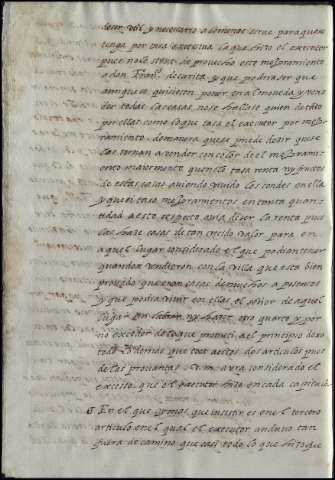 decir util y necesario a
tenga por cosa excesiua lo que hizo el executor
pues no le sient de prouecho este mejoramiento
a don Fran.co de curita, y que podria ser que
aunque se quisiesen poner en almoneda y ven
der todas las casas no se hallase quien diese tanto
por ellas como lo que tasa el executor por mejo
ramiento. de manera que se puede decir que se
las tornan a vender con color de el mejorami
ento. mayormente que no se tasa renta ny frutos
de estas casas auiendo viuido los condes en ella
y que si tasa mejoramientos en tanta quan
tidad a este respecto auia de ser la renta pues
las haze casas de tan crecido valor para en
aquel lugar considerado el que podian tener
quando se vendieron con la villa que esta bien
prouado que eran casas de muchos aposentos
y que podia viuir en ellas el señor de aquel
lugar sin labrar ny hazer otro quarto y por
no exceder de lo que prometi al principio dexo
todo lo demas que toca a estos dos articulos pues
de las prouanças V.m. aura considerado el
excesso que el executor hizo en cada capitulo
En el que yo mas que insistir es en el tercero
articulo en el qual el executor anduuo tan
fuera de camino que casi todo lo que hizo que